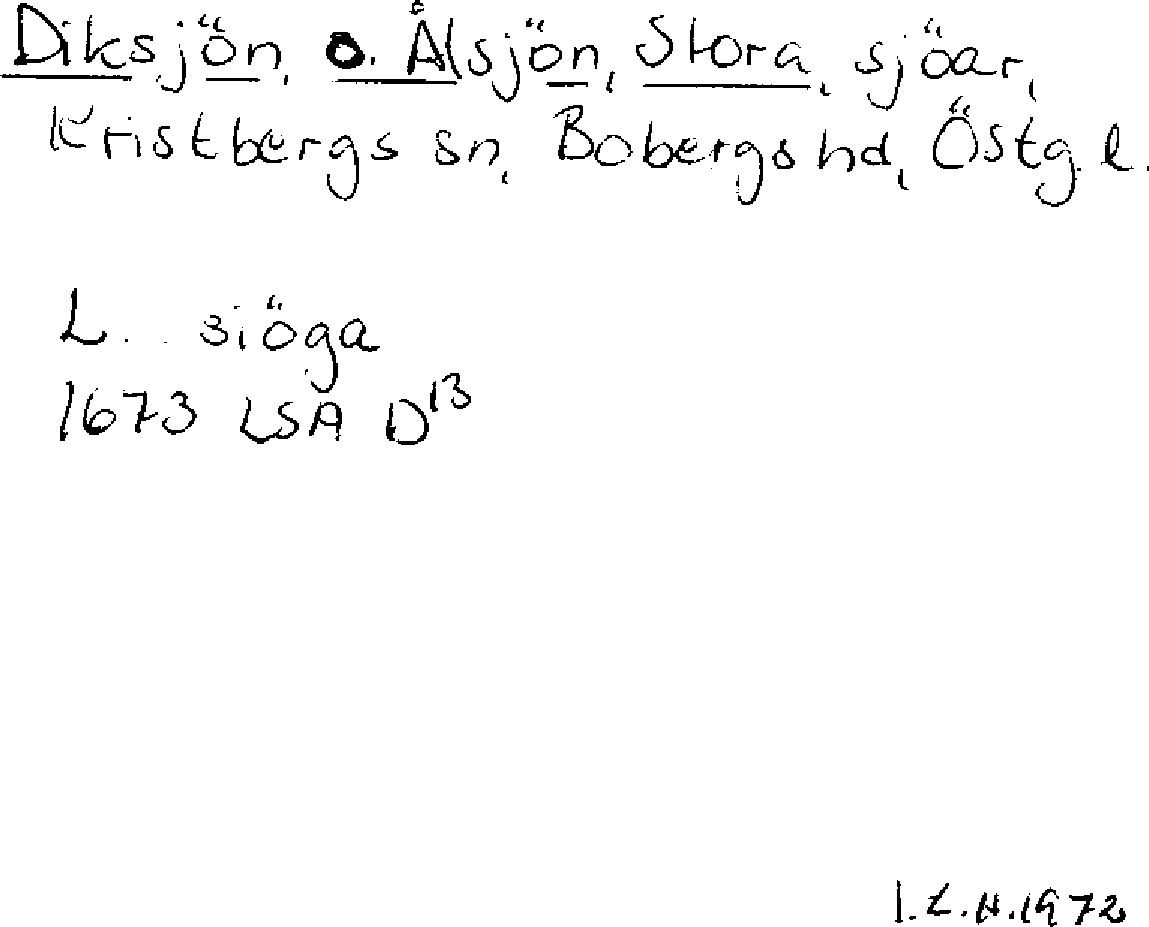 Diksjön, o. Ålsjön, Stora, sjöar,
Kristbergs sn, Bobergs hd, Östg. l.
L... siöga
1673 LSA D13
I.L.H. 1972